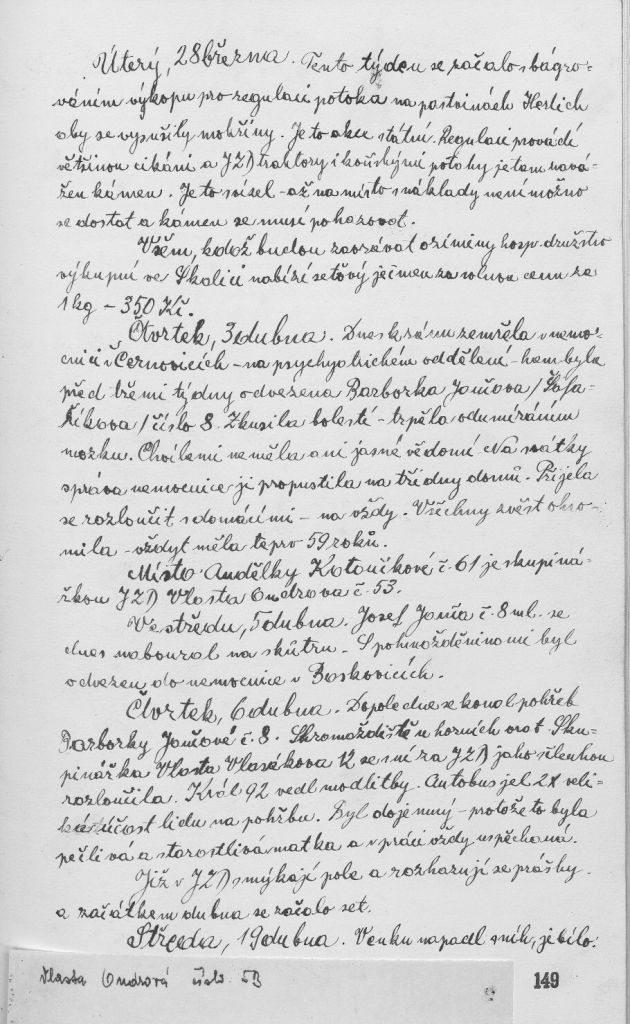 Úterý, 28března. Tento týden se začalo s bágro-
váním výkopu pro regulaci potoka na pastvinách Herlich
aby se vysušily mokřiny. Je to akce státní. Regulaci provádí
většinou cikáni a JZD traktory i koňskými potahy je tam navá-
žen kámen. Je to svízel - až na místo s náklady není možno
se dostat a kámen se musí pohazovat.
Všem, kdož budou zaorávat ozimimy hosp. družstvo
výkupní ve Skalici nabízí setový ječmen za volnou cenu za
1 kg - 350 Kč.
Čtvrtek, 3dubna. Dnes k ránu zemřela v nemo-
cnici v Černovicích - na psychyatrickém oddělení - kam byla
před třemi týdny odvezena Barborka Jančova / Šafa-
říkova / číslo 8. Zkusila bolestí - trpěla odumíráním
mozku. Chvílemi neměla ani jasné vědomí. Na svátky
správa nemocnice ji propustila na tři dny domů. Přijela
se rozloučit s domácími - na vždy. Všechny zvěst ohro-
mila - vždyt měla teprv 59 roků.
Místo Andělky Kotoučkové č. 61 je skupiná-
řkou JZD Vlasta Ondrova č. 53.
Ve středu, 5dubna. Josef Janča č. 8 ml. se
dnes naboural na skútru. S pohmožděninami byl
odvezen do nemocnice v Boskovicích.
Čtvrtek, 6dubna. Dopoledne se konal pohřeb
Barborky Jančové č. 8. Shromaždiště u horních vrat. Sku-
pinářka Vlasta Vlasákova 12 se s ní za JZD jako členkou
rozloučila. Král 92 vedl modlitby. Autobus jel 2x veli-
ká účast lidu na pohřbu. Byl dojemný - protože to byla
pečlivá a starostlivá matka a v práci vždy uspěchaná.
Již v JZD smýkají pole a rozhazují se prášky.
a začátkem dubna se začalo set.
Středa, 19dubna. Venku napadl sníh, je bílo.
Vlasta Ondrová čísl. 53
149